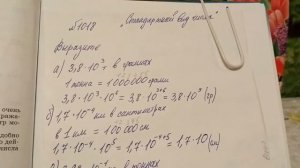 №1018 "Стандартный вид числа"
Выразите
а) 3,8·10³ т в граммах
1 тонна = 1000000 грамм
3,8·10³·10⁶ = 3,8·10³⁺⁶ = 3,8·10⁹ (гр)
б) 1,7·10⁻⁴ км в сантиметрах
в 1 км = 100000 см
1,7·10⁻⁴·10⁵ = 1,7·10⁻⁴⁺⁵ = 1,7·10 (см)
очень
добно
числа